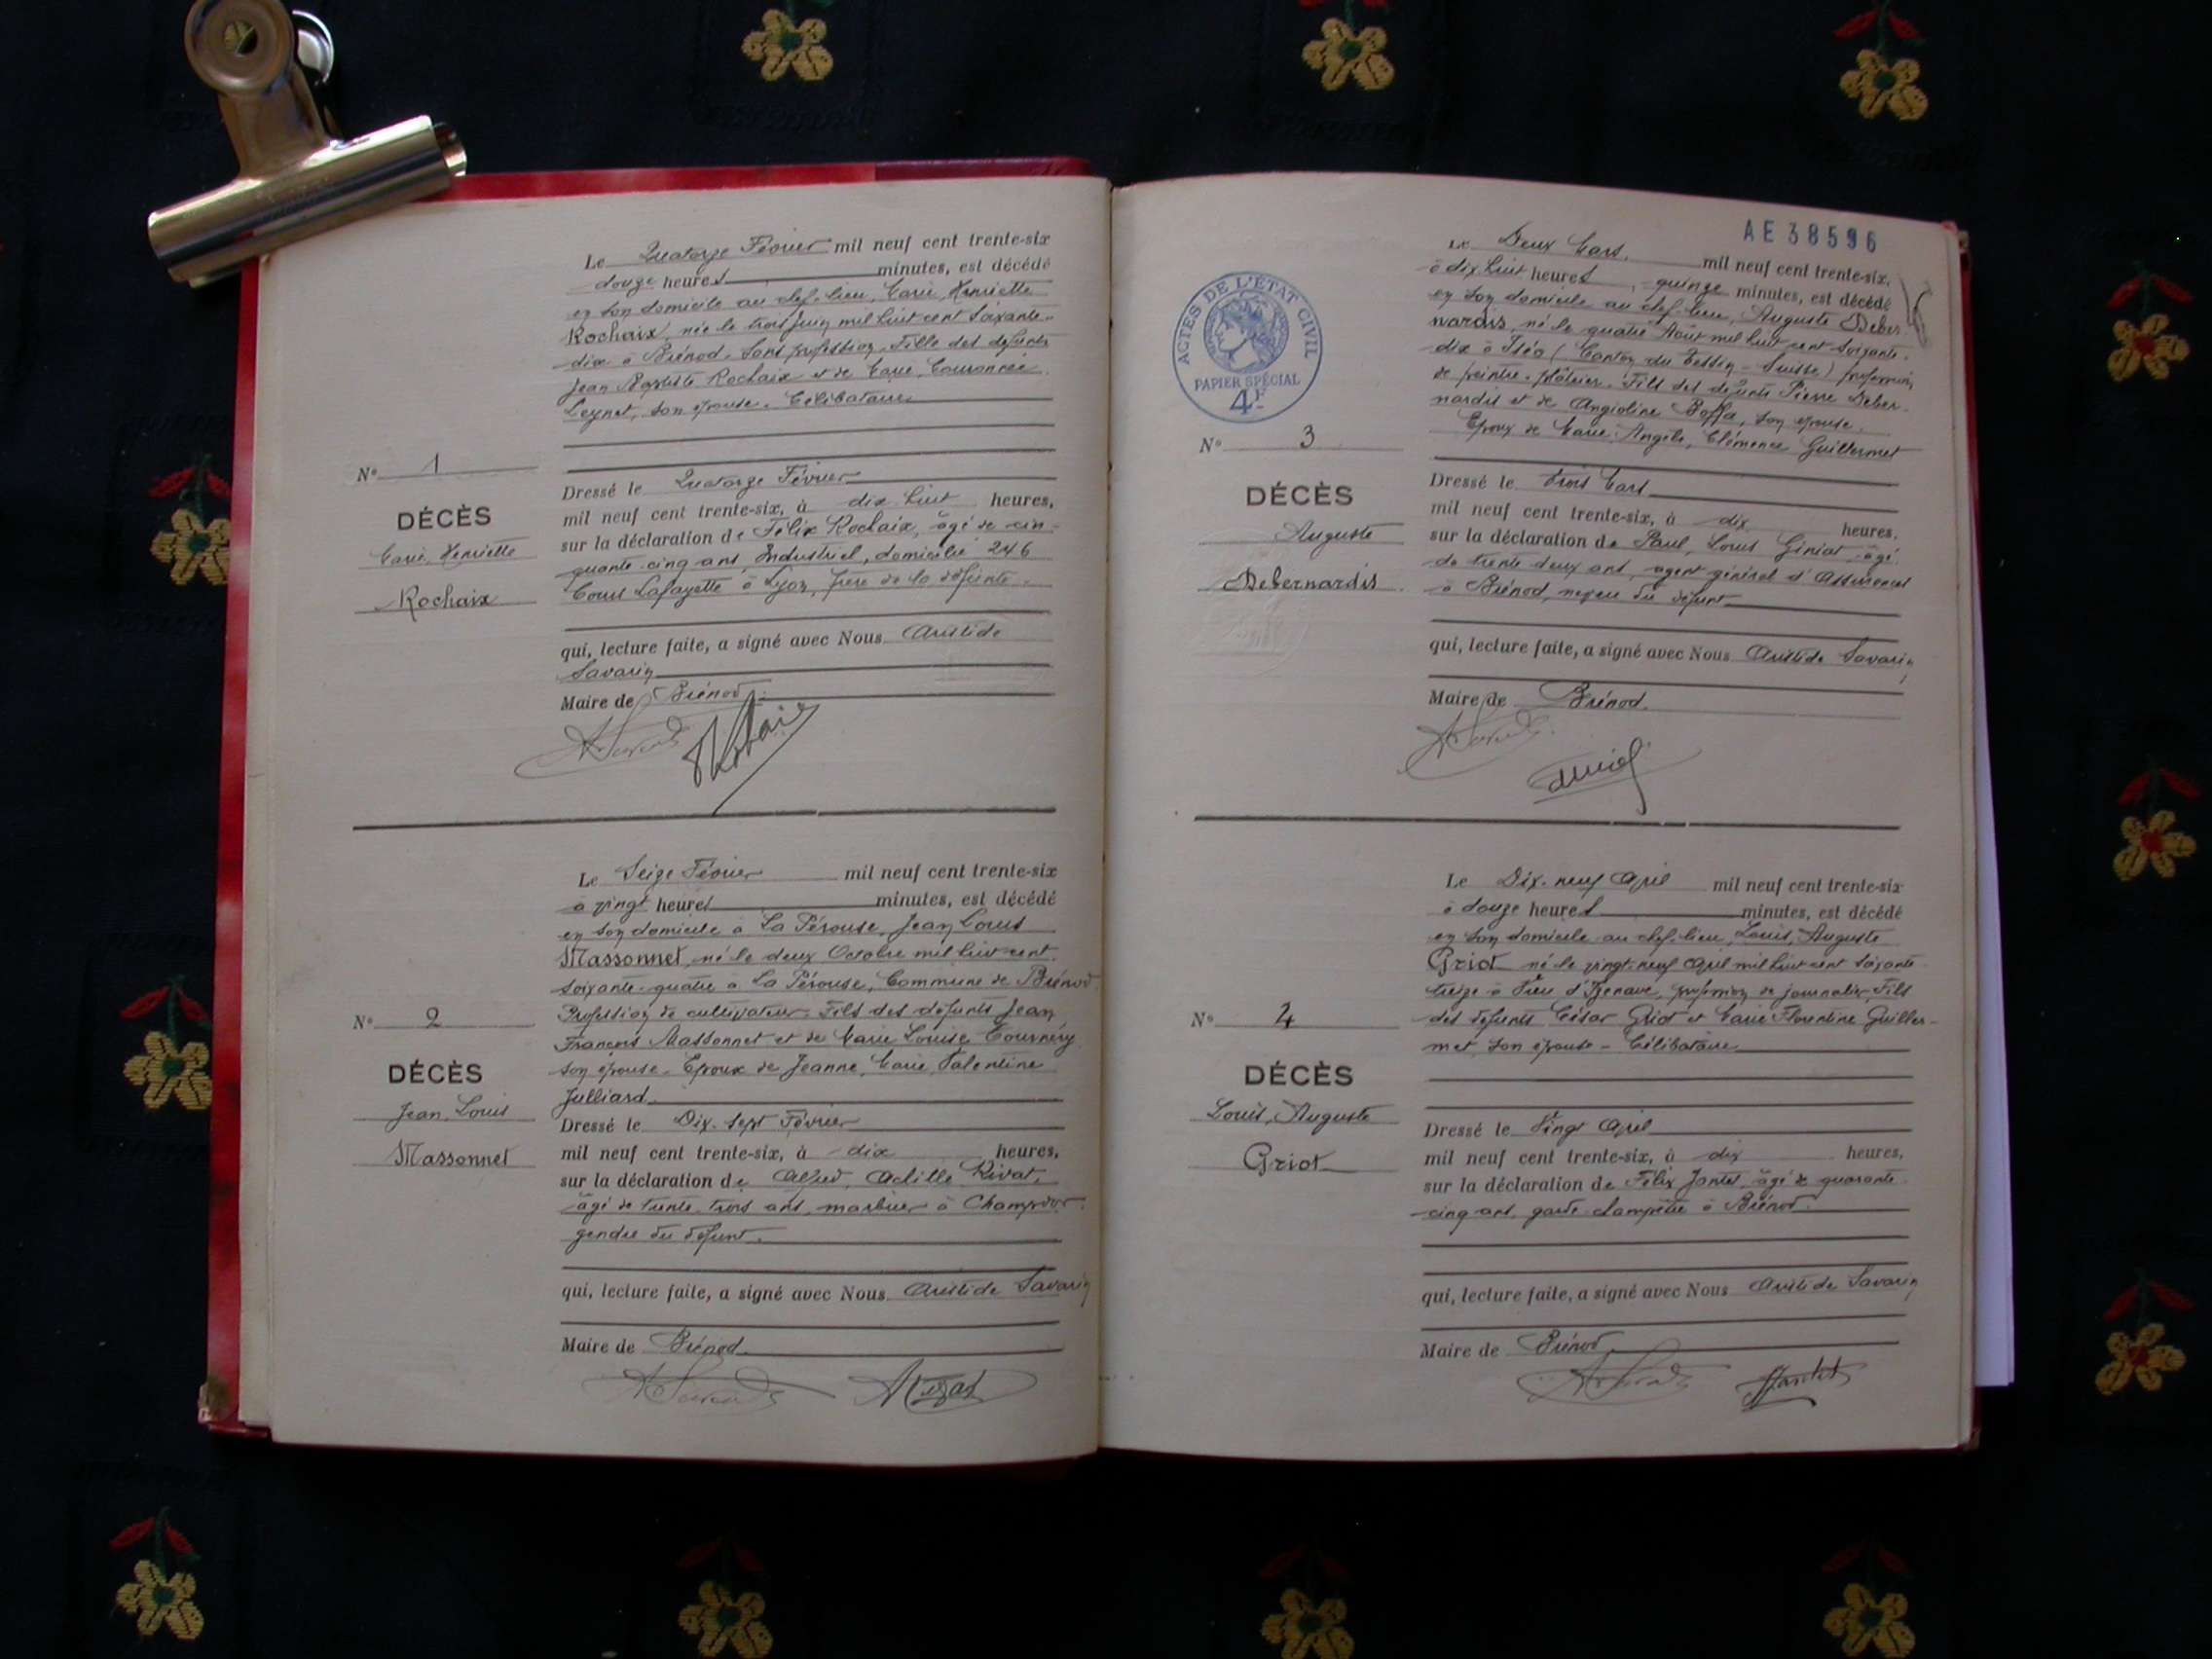 Le Quatorze Février mil neuf cent trente-six
douze heures minutes, est décédé
en son domicile au chef-lieu, Marie, Henriette
Rochaix, née le trois Juin mil huit cent soixante-
dix à Brénod, sans profession. Fille des défunts
Jean Baptiste Rochaix et de Marie, Couronnée
Leynet, son épouse. Célibataire
N° 1
DÉCÈS
Marie, Henriette
Rochaix
Dressé le Quatorze Février
mil neuf cent trente-six, à dix huit heures,
sur la déclaration de Félix Rochaix, âgé de cin-
quante-cinq ans, Industriel, domicilié 246
Cours Lafayette à Lyon, frère de la défunte.
qui, lecture faite, a signé avec Nous Aristide
Savarin
Maire de Brénod.
Le Seize Février mil neuf cent trente-six
à vingt heures minutes, est décédé
en son domicile à La Pérouse, Jean Louis
Massonnet, né le deux Octobre mil huit cent
soixante-quatre à La Pérouse, Commune de Brénod
Profession de cultivateur. Fils des défunts Jean
François Massonnet et de Marie Louise Tournéry
son épouse. Epoux de Jeanne, Marie, Valentine
Julliard
N° 2
DÉCÈS
Jean, Louis
Massonnet
Dressé le Dix-sept Février
mil neuf cent trente-six, à dix heures,
sur la déclaration de Alfred, Achille Rivat,
âgé de trente-trois ans, marbrier à Champdor
gendre du défunt.
qui, lecture faite, a signé avec Nous Aristide Savarin
Maire de Brénod
AE 38596
ACTES DE L'ÉTAT CIVIL
PAPIER SPÉCIAL
4F
Le Deux Mars, mil neuf cent trente-six,
à dix huit heures, quinze minutes, est décédé
en son domicile au chef-lieu, Auguste Deber-
nardis, né le quatre Août mil huit cent soixante-
dix à Iséo (Canton du Tessin - Suisse) profession
de peintre-plâtrier. Fils des défunts Pierre Deber-
nardis et de Angioline Boffa, son épouse.
Epoux de Marie, Angèle, Clémence Guillermet
N° 3
DÉCÈS
Auguste
Debernardis
Dressé le trois Mars
mil neuf cent trente-six, à dix heures,
sur la déclaration de Paul, Louis Giniat, âgé
de trente deux ans, agent général d'Assurances
à Brénod, neveu du défunt
qui, lecture faite, a signé avec Nous Aristide Savarin,
Maire de Brénod.
Le Dix-neuf Avril mil neuf cent trente-six
à douze heures minutes, est décédé
en son domicile au chef-lieu, Louis, Auguste
Griot né le vingt-neuf Avril mil huit cent soixante-
treize à Vieu d'Izenave, profession de journalier, Fils
des défunts César Griot et Marie Florentine Guiller-
met, son épouse - Célibataire
N° 4
DÉCÈS
Louis, Auguste
Griot
Dressé le Vingt Avril
mil neuf cent trente-six, à dix heures,
sur la déclaration de Félix Jantet, âgé de quarante-
cinq ans, garde-champêtre à Brénod.
qui, lecture faite, a signé avec Nous Aristide Savarin
Maire de Brénod